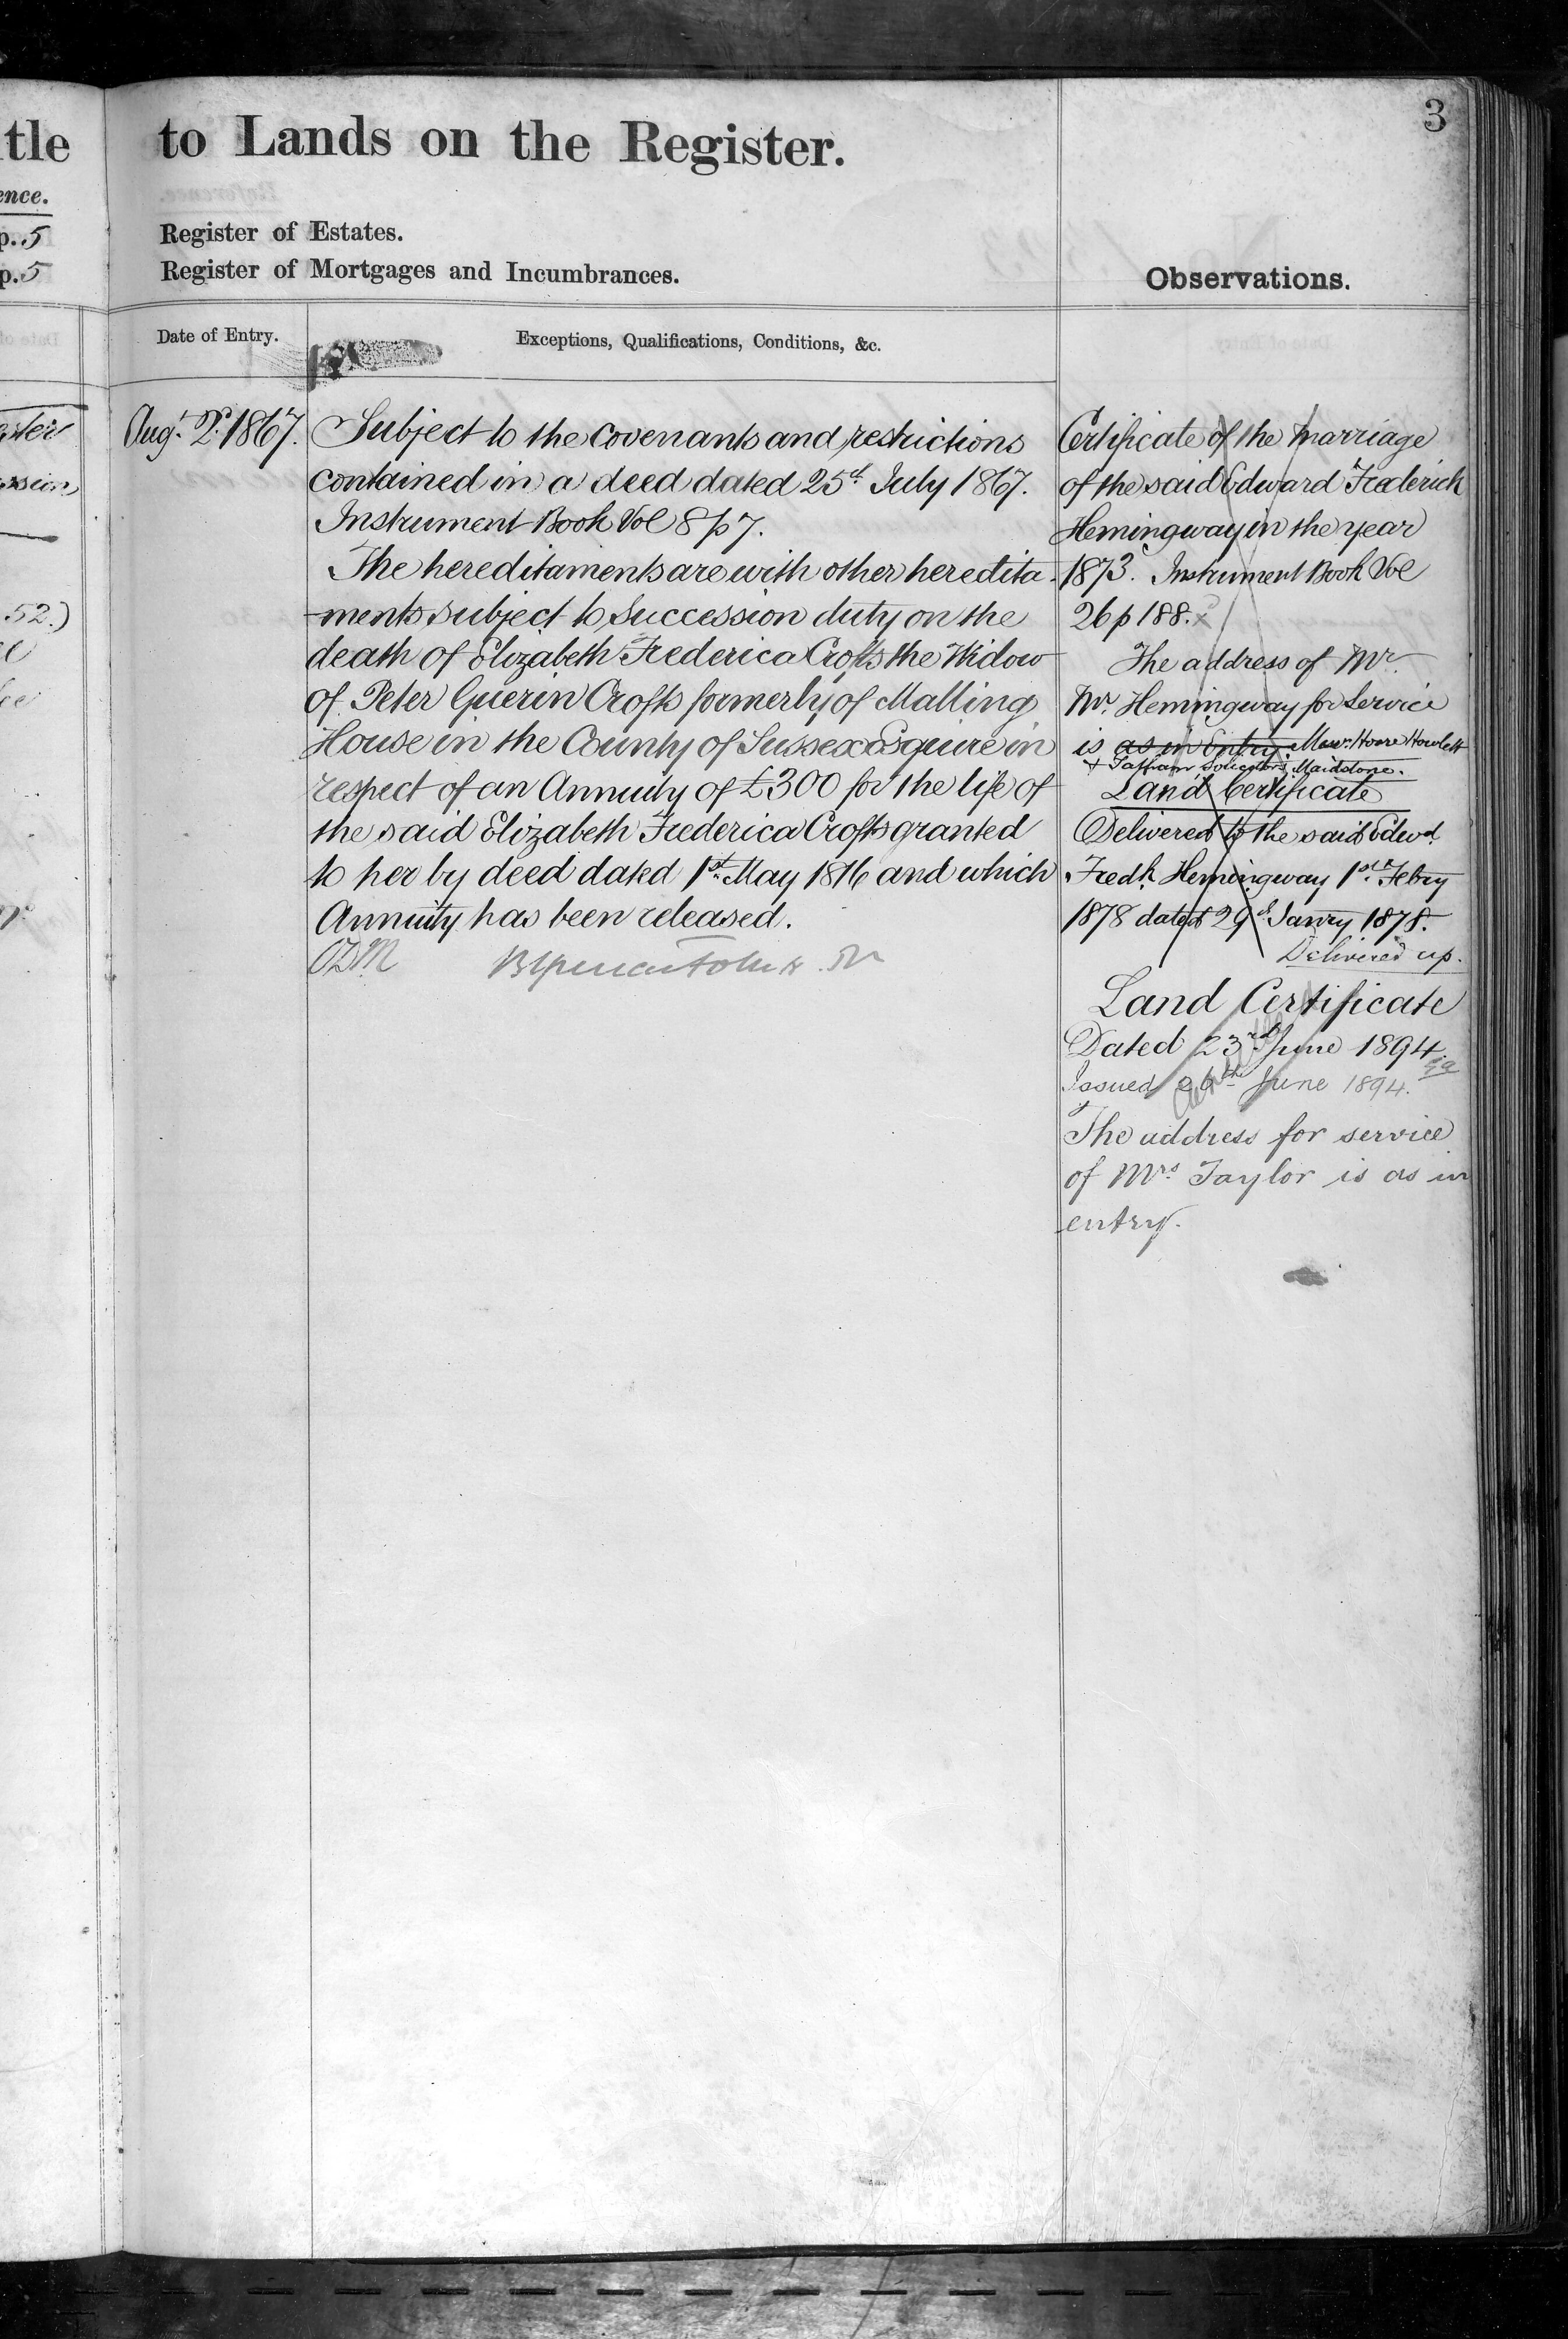 3
tle to Lands on the Register.
ence.
p. 5 Register of Estates.
p. 5 Register of Mortgages and Incumbrances.
Observations.
Date of Entry.
Exceptions, Qualifications, Conditions, &c.
Augt. 2d. 1867.
Subject to the covenants and restrictions
contained in a deed dated 25th July 1867.
Instrument Book Vol 8 p 7.
The heredita ments are with other heredita-
-ments subject to Succession duty on the
death of Elizabeth Frederica Crofts the Widow
of Peter Guerin Crofts formerly of Malling
House in the County of Sussex Esquire in
respect of an Annuity of £300 for the life of
the said Elizabeth Frederica Crofts granted
to her by deed dated 1st. May 1816 and which
Annuity has been released.
52.)
Certificate of the marriage
of the said Edward Frederick
Hemingway in the year
1873. Instrument Book Vol
26 p 188.
The address of Mr.
Mr. Hemingway for Service
is as in Entry. Messrs. Hoare Howlett
+ Solicitors Maidstone.
Land Certificate
Delivered to the said Edwd.
Fredk. Hemingway 1st. Febry
1878 dated 29th Janry 1878.
Delivered up.
Land Certificate
Dated 23rd June 1894.
Issued 26th June 1894.
The address for service
of Mrs. Taylor is as in
entry.